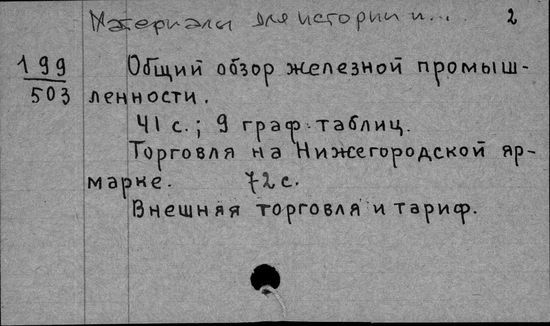 Материалы для истории и... 2
199
503
Общий обзор железной промыш-
ленности.
41 с.; 9 граф. таблиц.
Торговля на Нижегородской яр-
марке. 72 с.
Внешняя торговля и тариф.